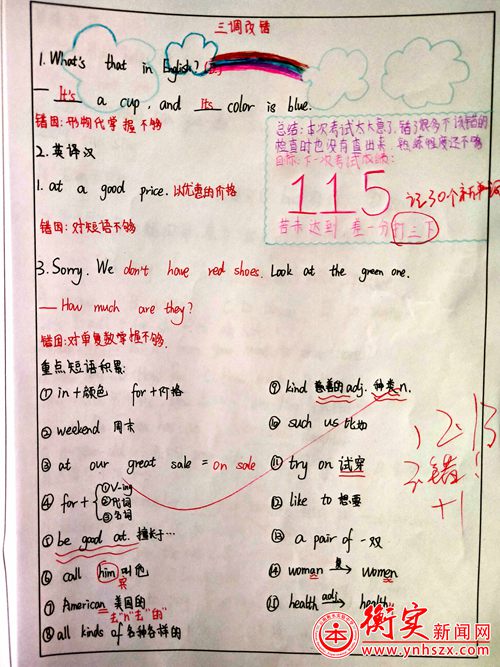 三调改错
1. What's that in English? 
— It's a cup, and Its color is blue.
错因:形物代掌握不够
总结:本次考试太大意了,错了很多不该错的
检查时也没有查出来 熟练程度还不够
目标:下一次考试
115
记30个
若未达到,差一分打三下
2. 英译汉
1. at a good price. 以优惠的价格
错因:对短语不够
3. Sorry. We don't have red shoes. Look at the green one.
— How much are they?
错因:对单复数掌握不够.
重点短语积累:
① in+颜色 for+价格
② weekend 周末
③ at our great sale = on sale
④ for+ ①V-ing ②代词 ③名词
⑤ be good at. 擅长于…
⑥ call him 叫他
⑦ American 美国的
去"n"去"的"
⑧ all kinds of 各种各样的
⑨ kind 慈善的adj. 种类n.
⑩ such us 比如
⑪ try on 试穿
⑫ like to 想要
⑬ a pair of 一双
⑭ woman → women
⑮ health adj→ healthy
12.13
错!
+1
衡实新闻网
www.ynhszx.com